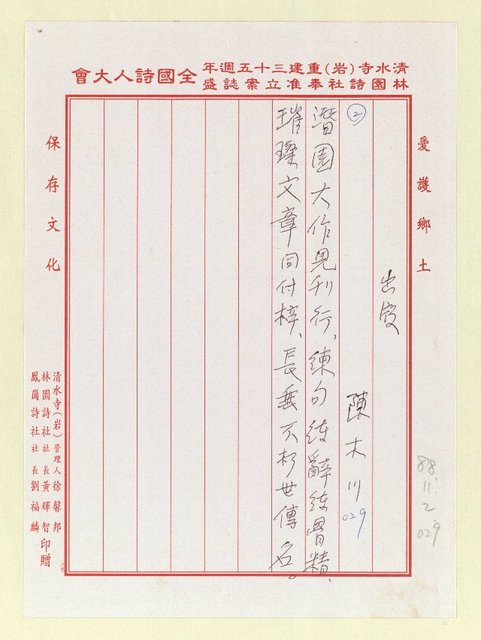 清水寺(岩)重建三十五週年
林園詩社奉准立案誌盛
全國詩人大會
愛護鄉土
88.11.2
029
出版
陳木川 029
②
潛園大作見刊行、練句練辭練骨精、
璀璨文章同付梓、長垂不朽世傳名。
保存文化
清水寺(岩)管理人徐馨邦
林園詩社社長黃輝智
鳳崗詩社社長劉福麟
印贈